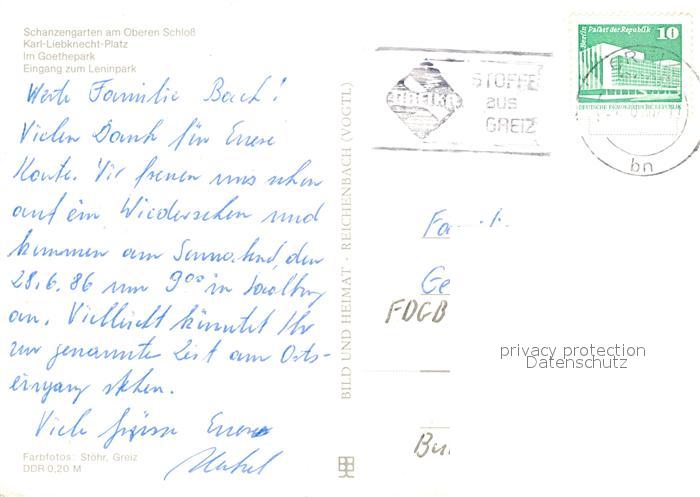 Schanzengarten am Oberen Schloß
Karl-Liebknecht-Platz
Im Goethepark
Eingang zum Leninpark
Werte Familie Bach!
Vielen Dank für Eure
Karte. Wir freuen uns schon
auf ein Wiedersehen und
kommen am Sonnabend, den
28.6.86 um 9⁰⁰ in
an. Vielleicht könntet Ihr
zur genannten Zeit am Orts-
eingang stehen.
Viele Grüsse Eure
Farbfotos: Stöhr, Greiz
DDR 0,20 M
BILD UND HEIMAT · REICHENBACH (VOGTL)
STOFFE
aus
GREIZ
Berlin Palast der Republik
10
DEUTSCHE DEMOKRATISCHE REPUBLIK
bn
Fa
Ge
FDGB
privacy protection
Datenschutz